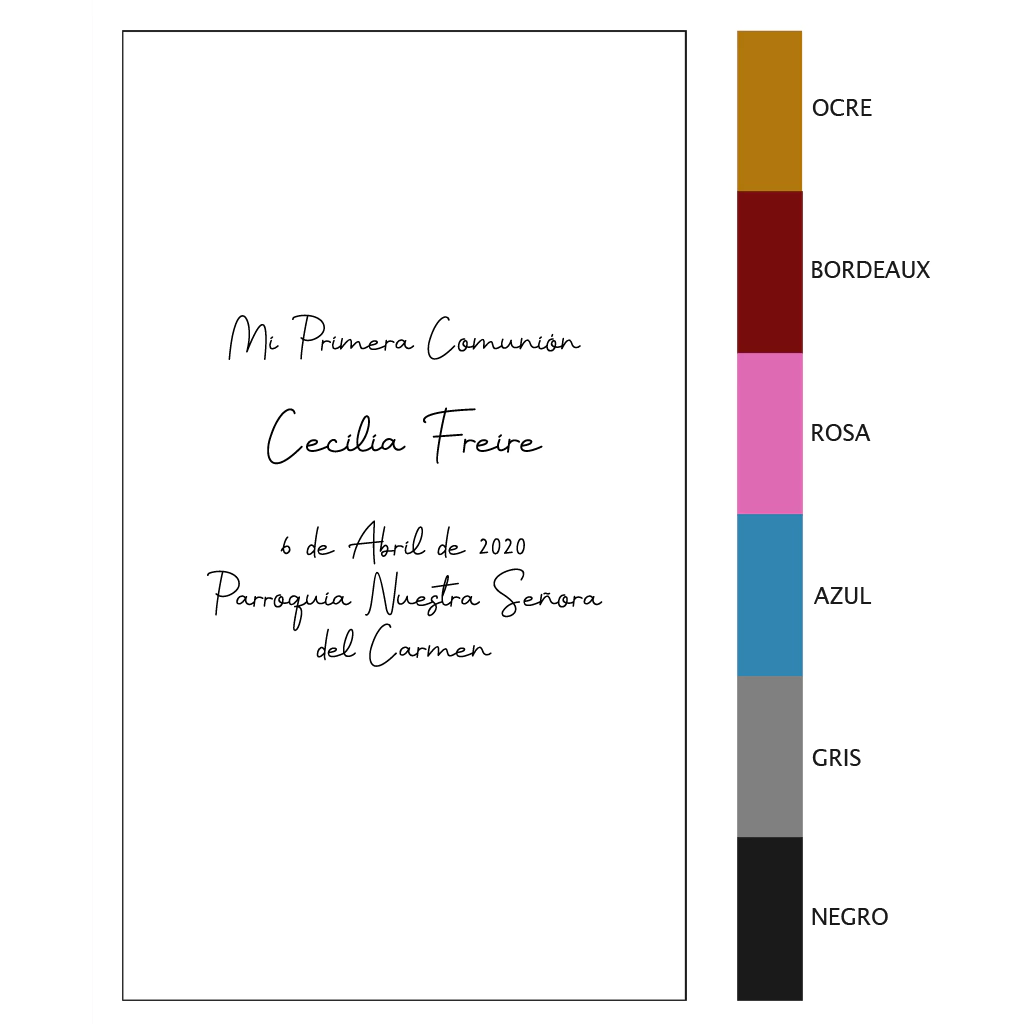 Mi Primera Comunión
Cecilia Freire
6 de Abril de 2020
Parroquia Nuestra Señora
del Carmen
OCRE
BORDEAUX
ROSA
AZUL
GRIS
NEGRO